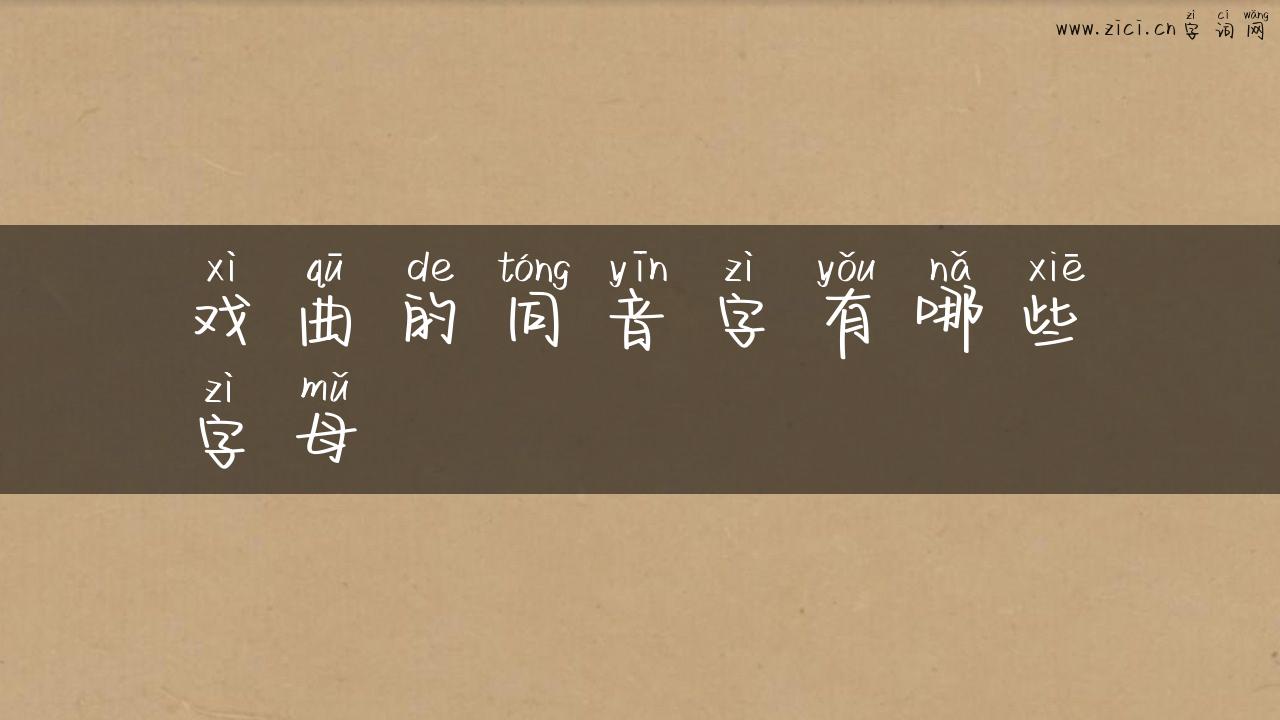 zì cí wǎng
www.zici.cn 字 词 网
xì qū de tóng yīn zì yǒu nǎ xiē
戏 曲 的 同 音 字 有 哪 些
zì mǔ
字 母